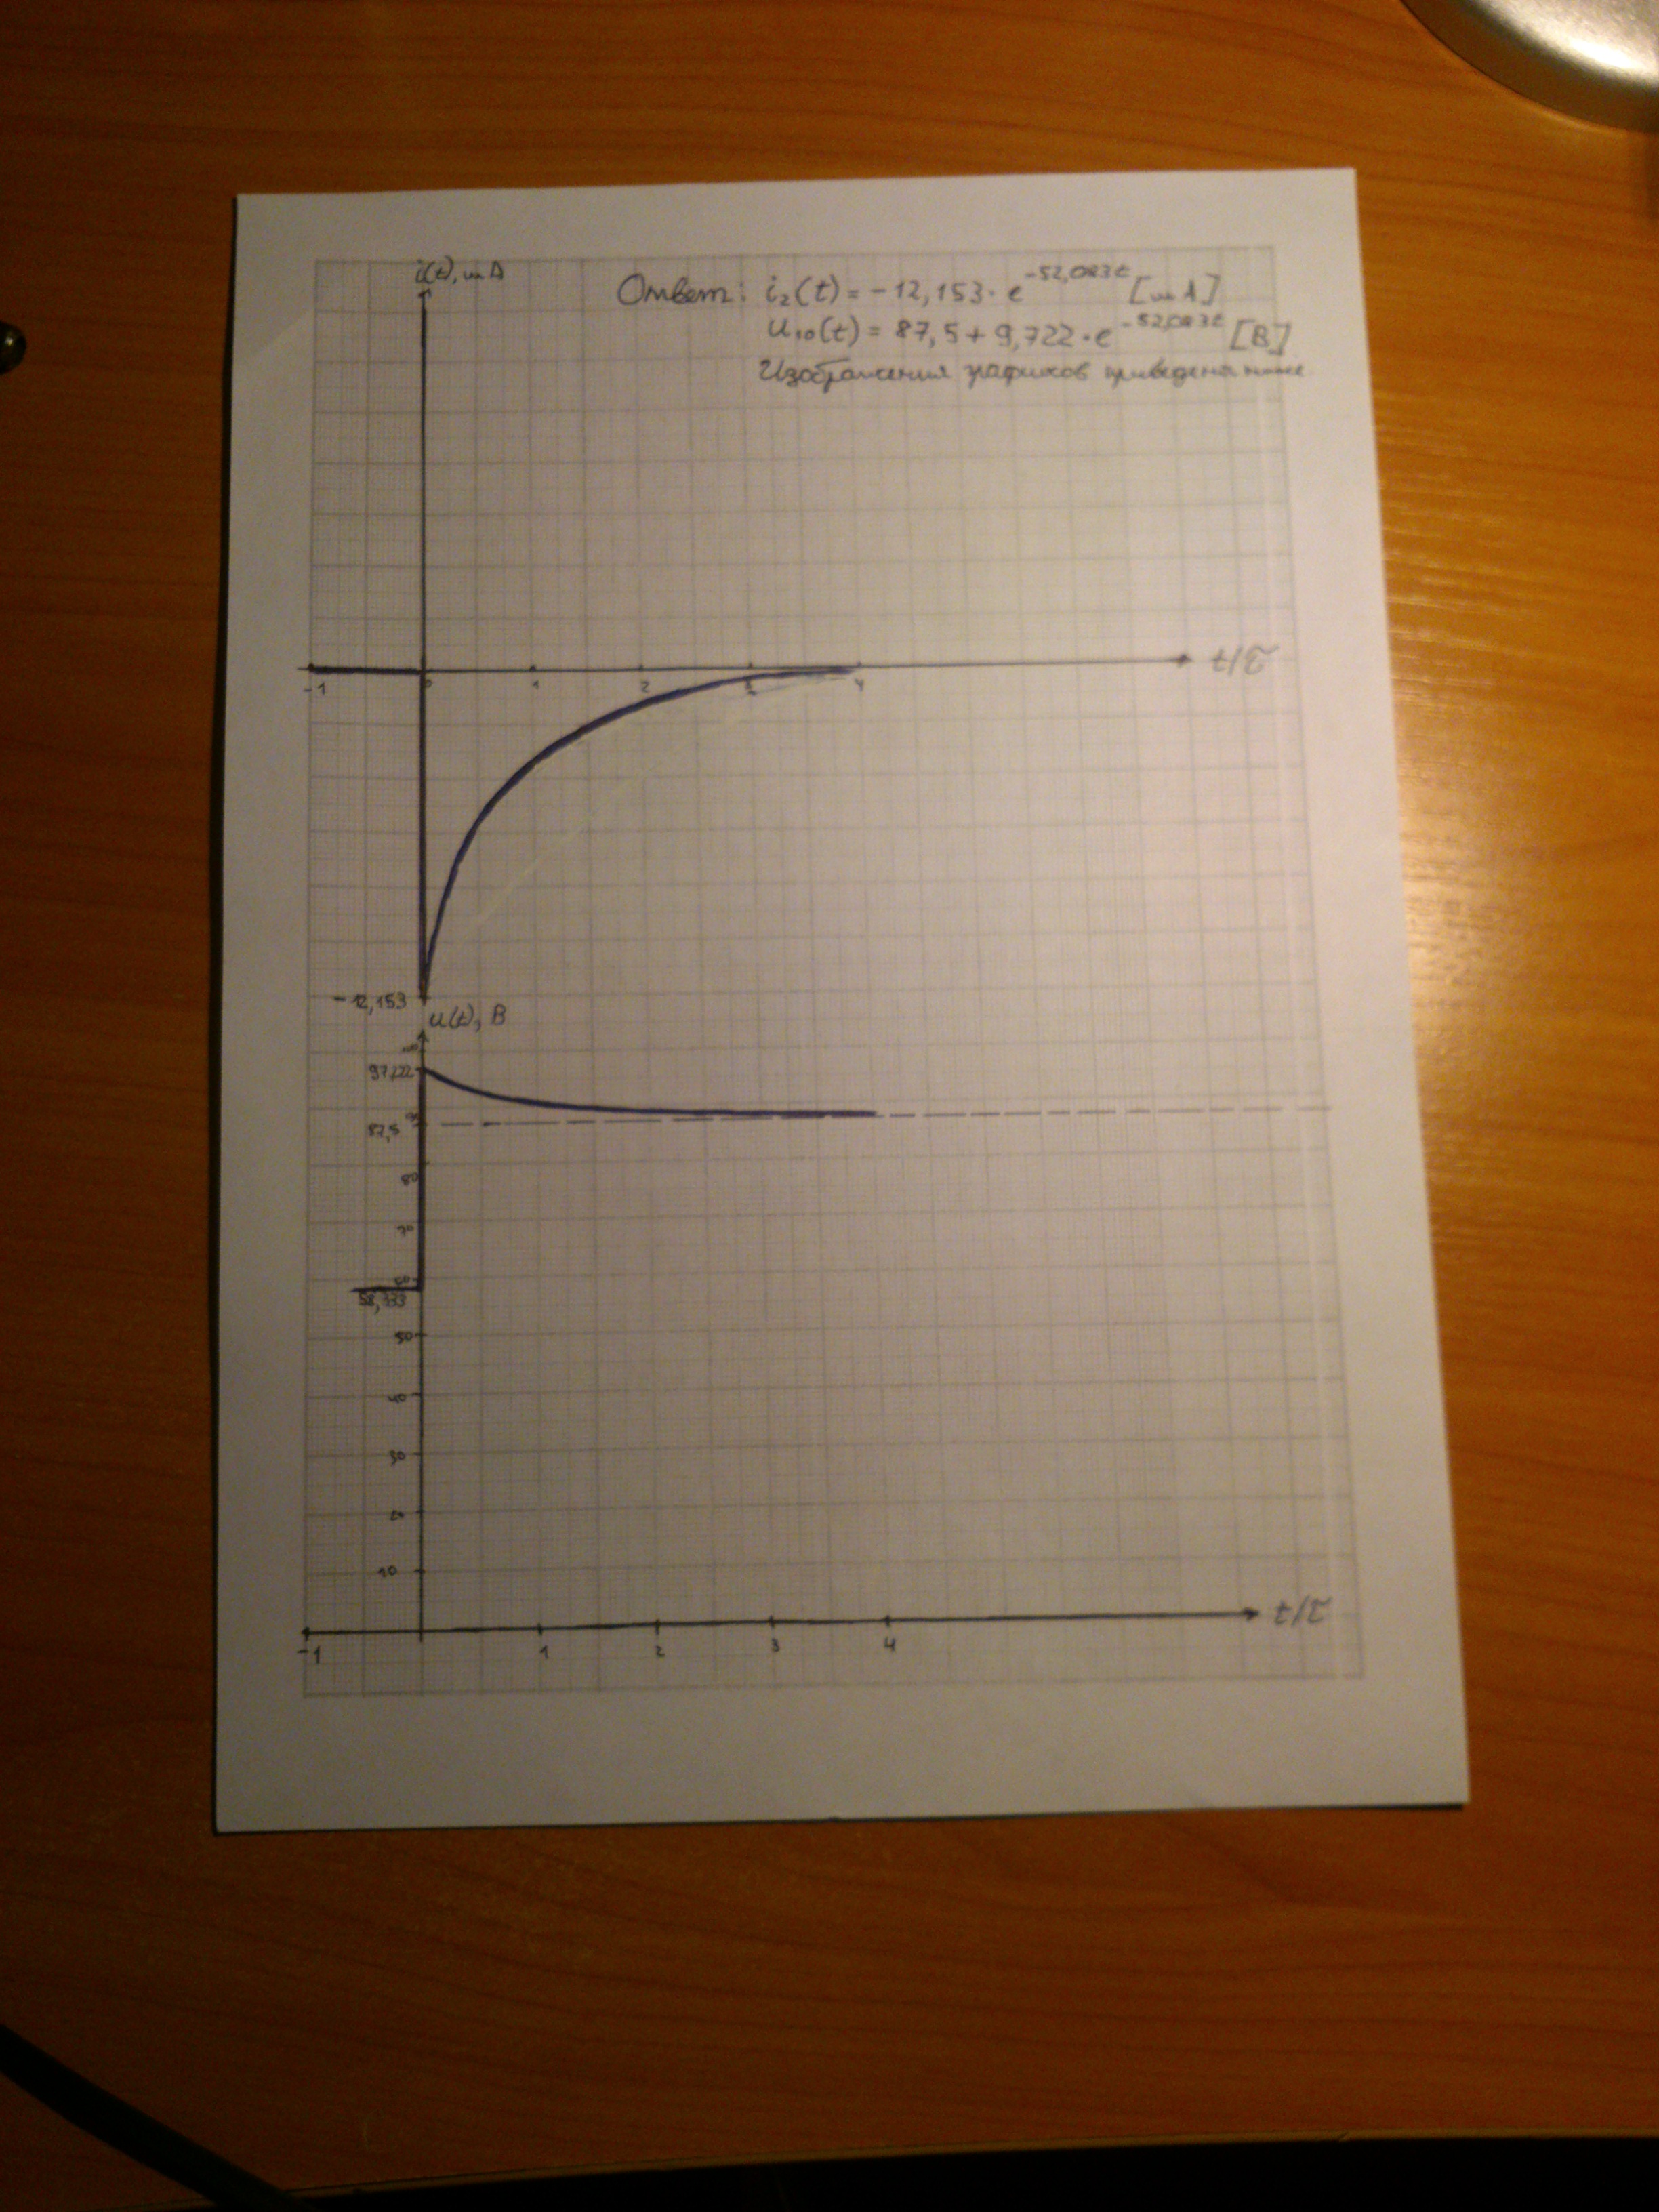 i(t), mA
Ответ: i₂(t) = -12,153 · e^-52,083t [mA]
u₁₀(t) = 87,5 + 9,722 · e^-52,083t [В]
Изображения графиков приведены ниже
t/τ
-1 0 1 2 3 4
-12,153
u(t), В
97,222
90
87,5
80
70
60
58,333
50
40
30
20
10
t/τ
-1 1 2 3 4